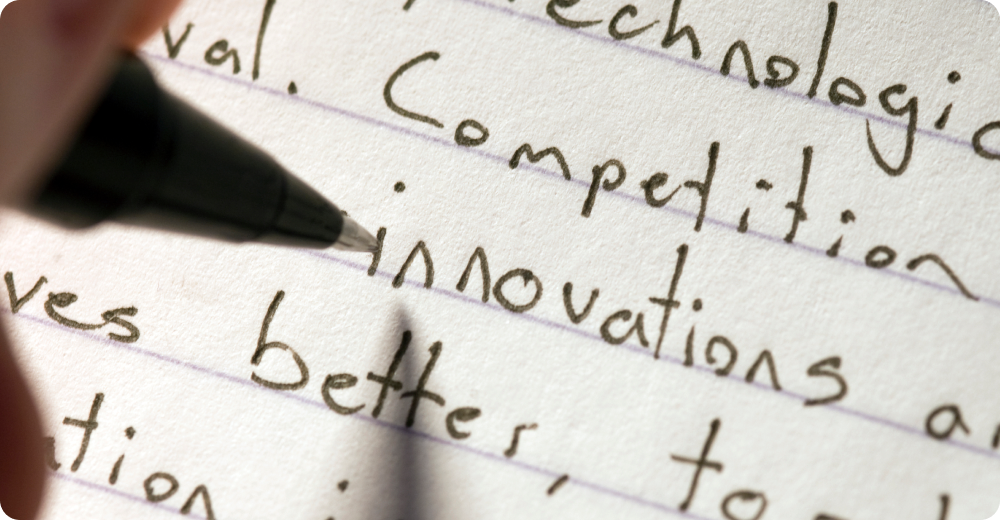 Technologic
val. Competition
innovations a
ves better, to
ation i